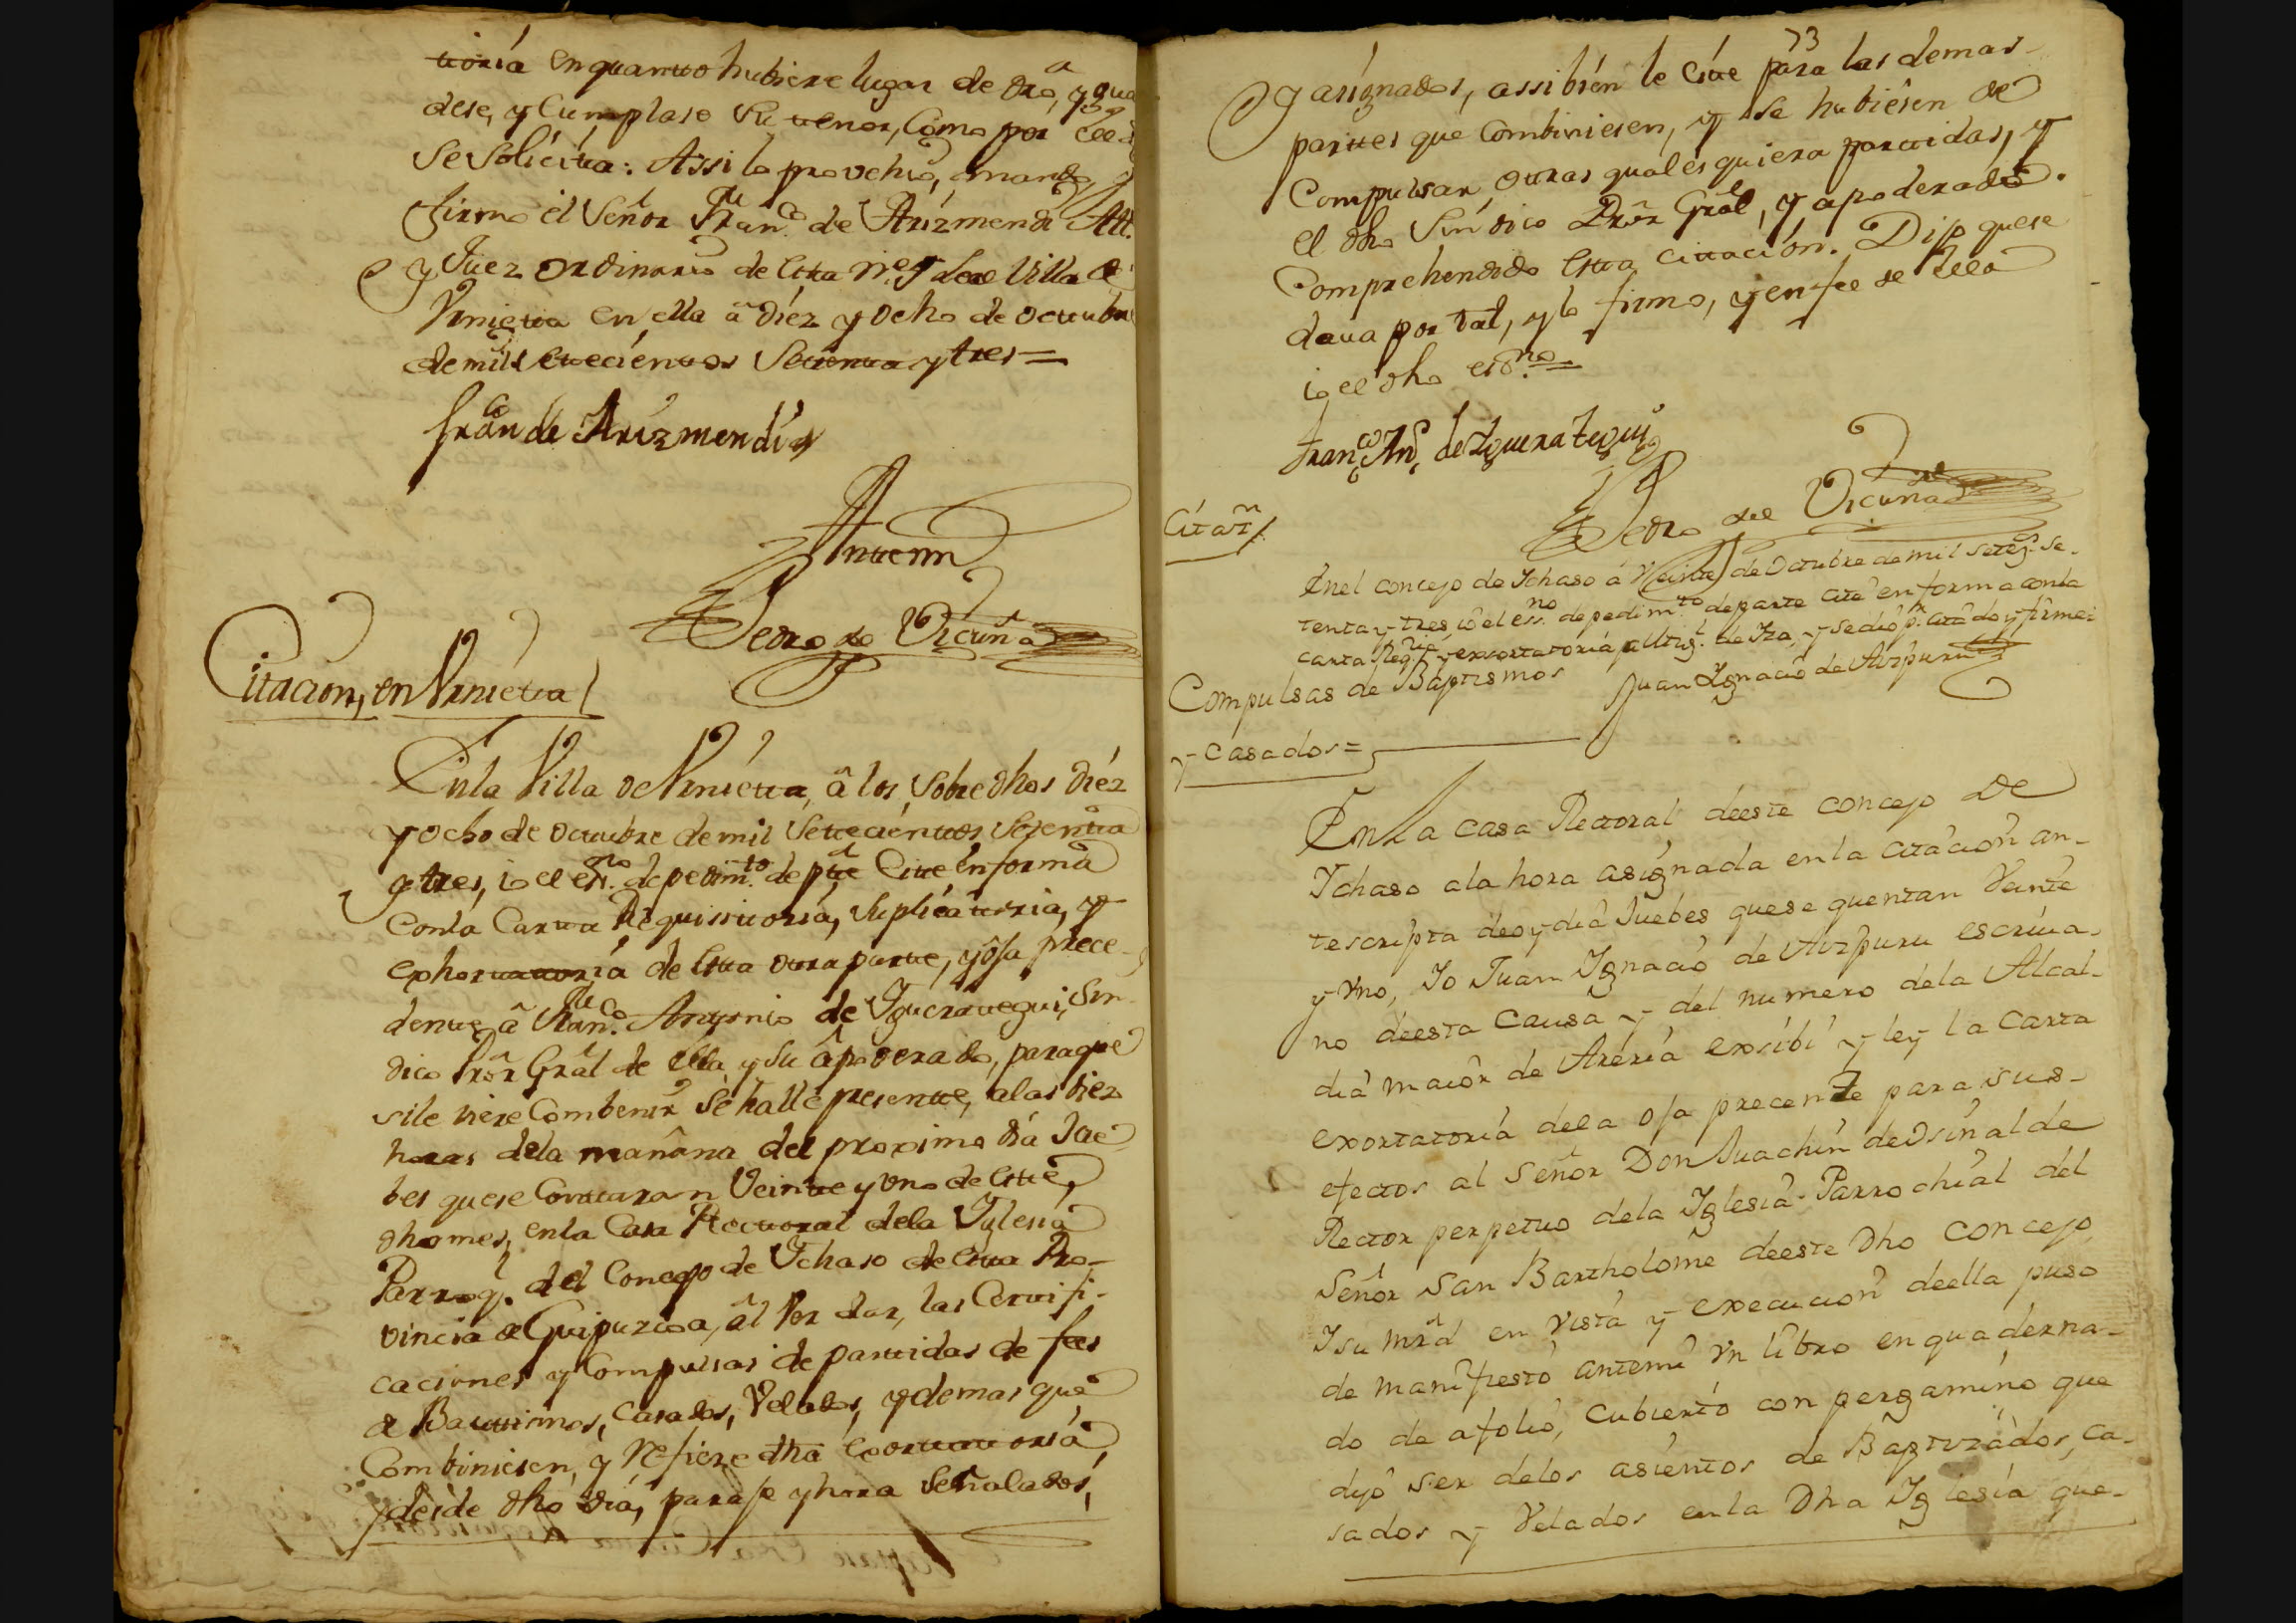 toria en quanto hubiere lugar de dro, y gua
dese, y Cumplase su tenor, Como por ella
se solicita: Assi lo provehio, mando, y
firmo el Señor Franco. de Arizmendi Alc.
y Juez ordinario de esta N. y Leal Villa de
Urnieta en ella â diez y ocho de octubre
de mil setecientos setenta y tres =
Fran.co de Arizmendi
Antemi
Pedro de Vicuña
Citacion, en Urnieta
En la Villa de Urnieta, â los sobredhos diéz
y ocho de octubre de mil setecientos setenta
y tres, io el essno. de pedimto. de pte Cite en forma
con la Carta Requisitoria, suplicatoria, y
exhortatoria de esta otra parte, y oja prece-
dente, â Franco. Antonio de Ygueravegui, Sin-
dico Prôr Gràl de ella, y su âpoderado, paraque
si le viere Combenir se halle presente, a las diez
horas dela mañana del proximo dia Jue-
bes que se Contaran Veinte y uno de este
dho mes, en la Casa Rectoral dela Yglesia
Parroql. del Concejo de Ychaso de esta Pro-
vincia de Guipuzcoa, âl Ver dar, las Certifi-
caciones y Compulsas de partidas de fees
de Bautismos, Casados, Velados, y demas que
Combiniesen, y refiere dha exortatoria
y desde dho dia, paraje y hora señalados,
73
y asignados, assibien le Cite para las demas
partes que Combiniesen, y se hubiesen de
Compulsar, otras qualesquiera partidas, y
el dho Sindico Prôr Gràl, y apoderado.
Comprehendido esta citación. Dijo que se
dava por tal, y lo firmo, y en fee de ello
io el dho essno. =
Franco. Anto. de Yguerategui
Pedro de Vicuña
Citazn
En el concejo de Ychaso á Veinte de Octubre de mil setezs. se-
tenta y tres io el essno. de pedimto. de parte cite en forma con la
carta Reqria. y exsortatoria de Yza, y se dio pr. citado y firme:
Juan Ygnacio de Aizpuru
Compulsas de Baptismos
y casados =
En la casa Rectoral deeste concejo de
Ychaso ala hora asignada en la citacion an-
tescripta de oy dia Juebes que se quentan Veinte
y vno, Yo Juan Ygnacio de Aizpuru escriua-
no deesta Causa y del numero dela Alcal-
dia maior de Areria exsibi y ley la Carta
exortatoria dela oja precente para sus
efectos al Señor Don Juachin de Osinalde
Rector perpetuo dela Yglesia Parrochial del
Señor San Bartholome deeste Dho concejo
Y su Mrd en vista y execucion deella puso
de manifiesto antemi vn libro enquaderna-
do de afolio, cubierto con pergamino que
dijo ser delos asientos de Baptizados, ca-
sados y Velados en la Dha Yglesia que-